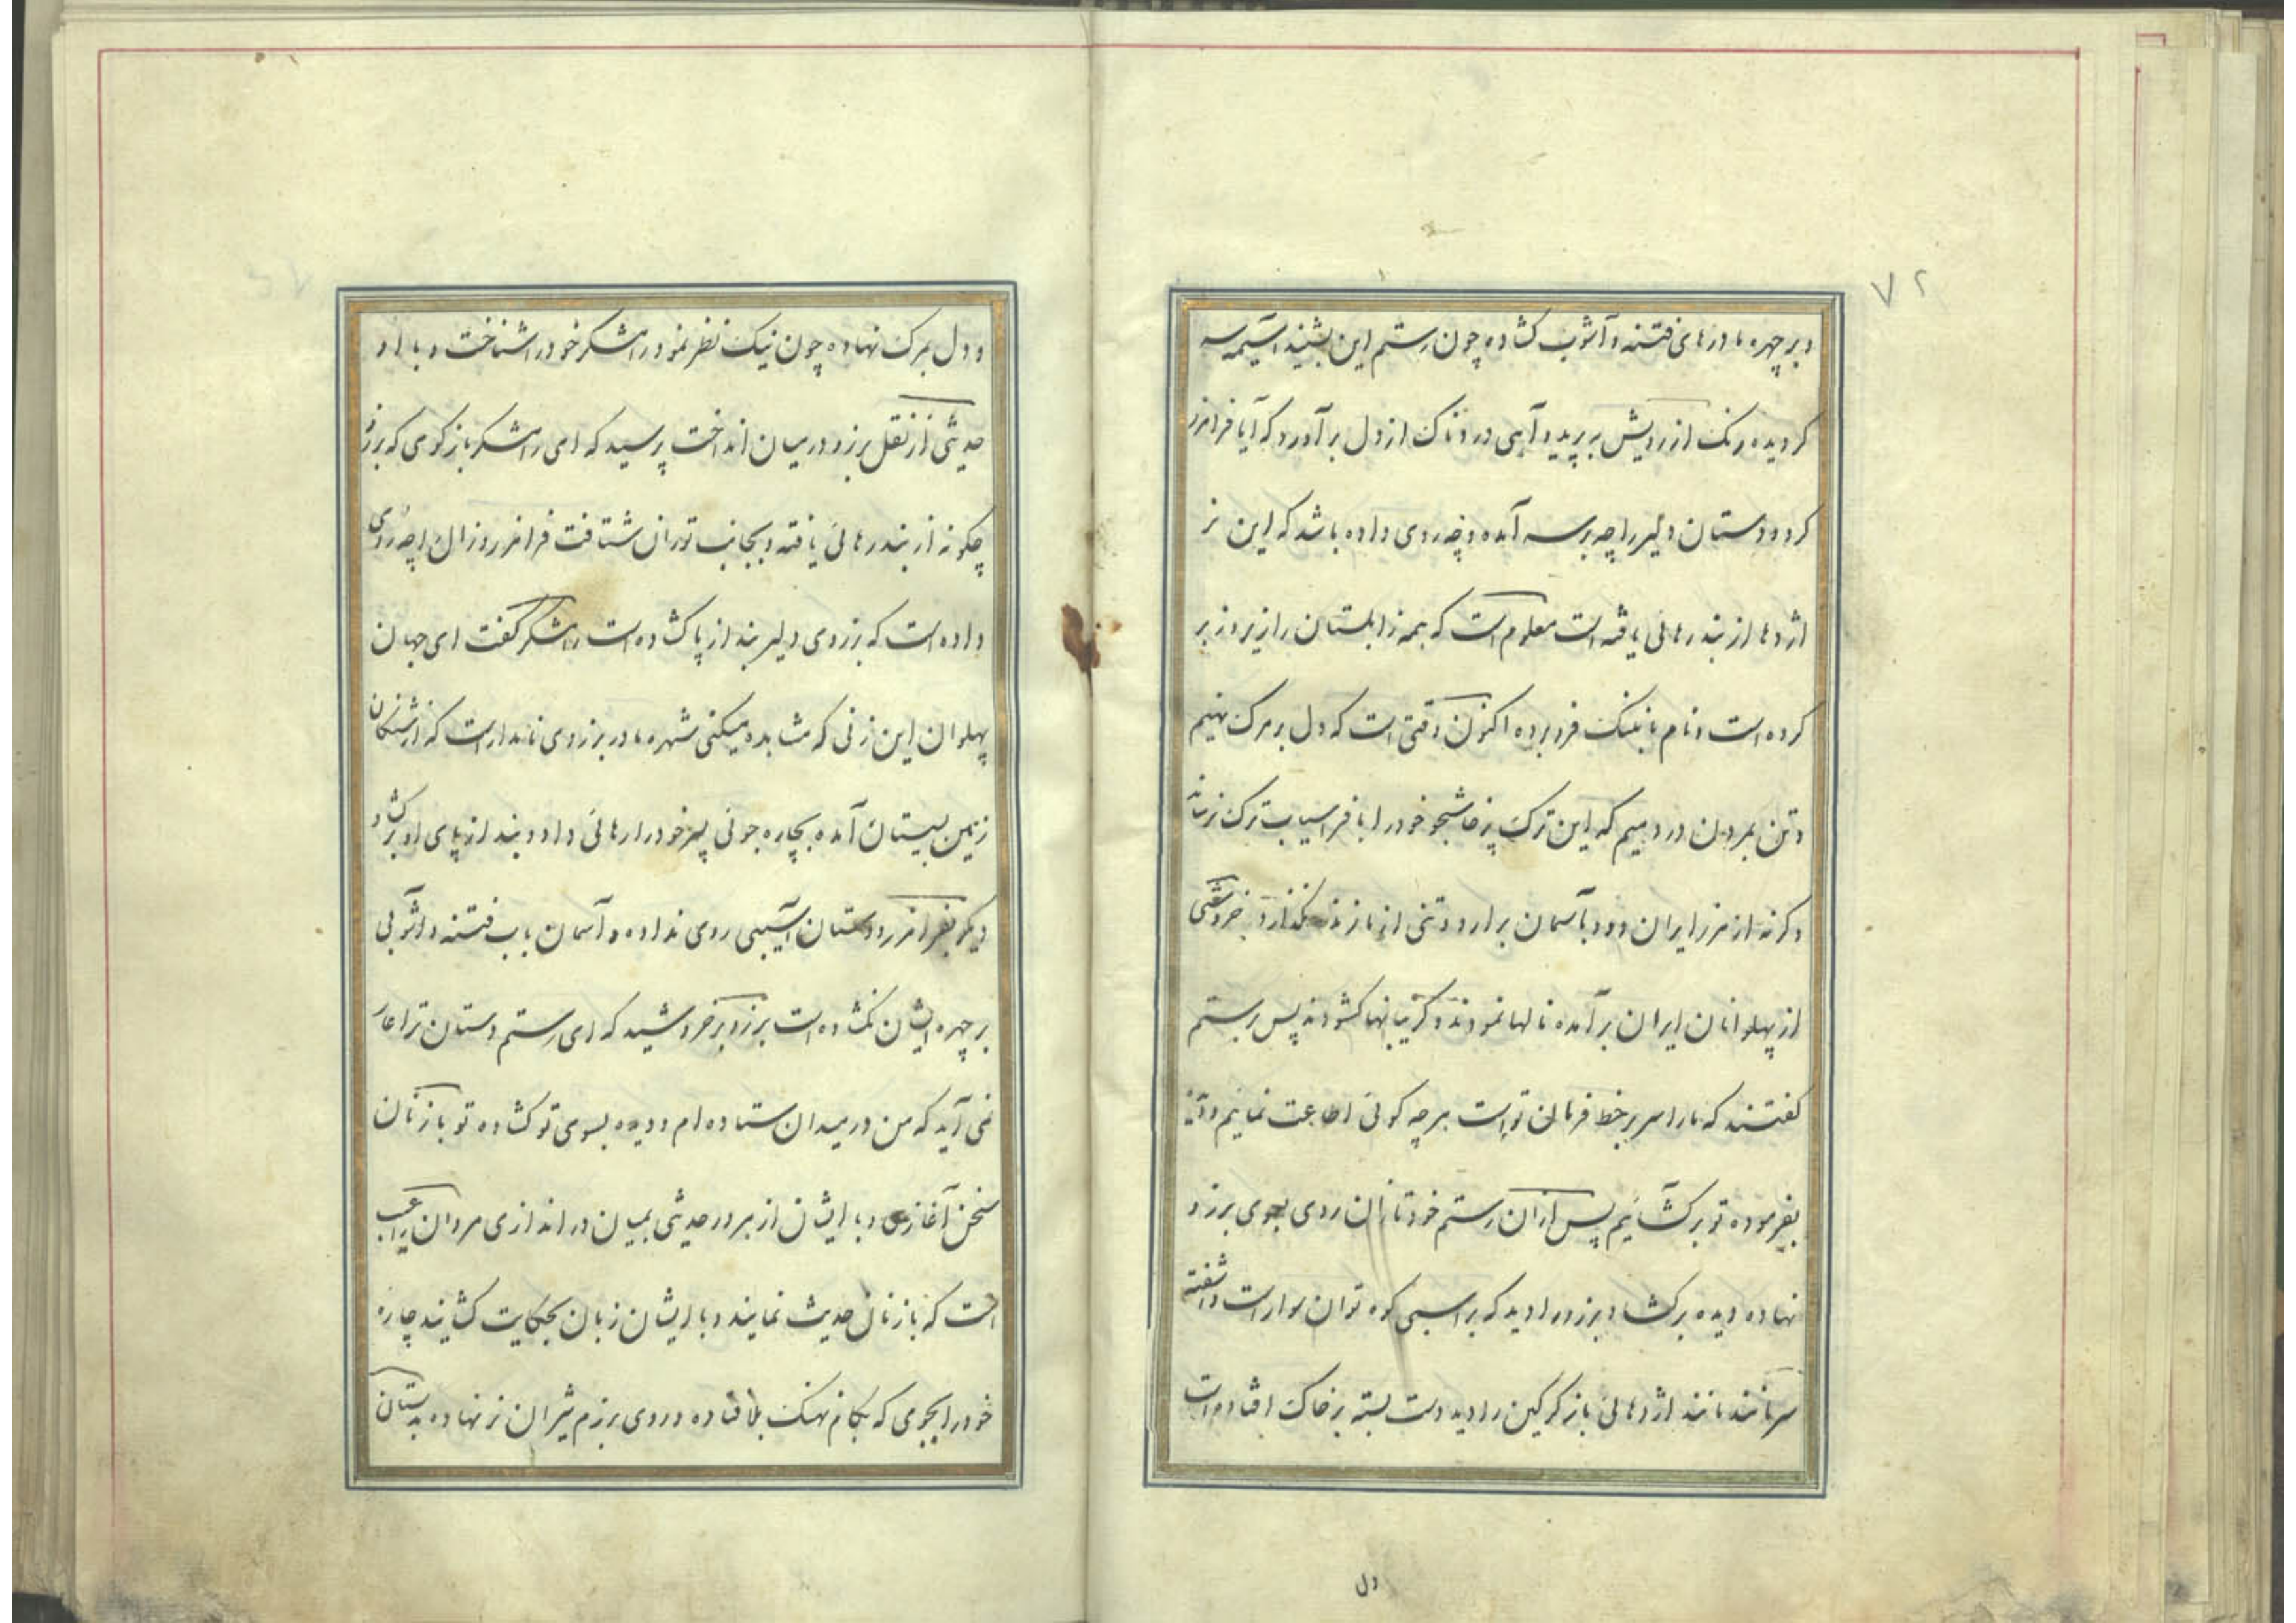 ۷۲
و بر چهره ما درهای فتنه و آشوب کشاده چون رستم این بشنید آسیمه سر
کردیده رنک از رویش به پرید و آهی دردناک از دل بر آورد که آیا فرامرز
کرد و دستان دلیر را چه بر سر آمده و چه روی داده باشد که این نر
اژدها از بند رهائی یافته است معلوم است که همه زابلستان را زیر و زبر
کرده است و نام ما بننک فرو برده اکنون وقتی است که دل بر مرک نهیم
و تن بمردن در دهیم که این ترک پرخاشجو خود را با فراسیاب ترک رساند
و کرنه از مرز ایران دود بآسمان برارد و تنی از ما زنده نگذارد خروشی
از پهلوانان ایران بر آمده نالها نمودند و کریبانها کشودند پس برستم
کفتند که ما را سر بر خط فرمان تو است هر چه کوئی اطاعت نمائیم و دیده
بفرموده تو بر کشائیم پس از آن رستم خود تازان روی بسوی برزو
نهاده دیده بر کشاد برزو را دید که بر اسبی کوه توان سوار است و آشفته
سر مانند مانند اژدهائی باز کرکین را دید دست بسته بر خاک افتاده است
دل
و دل بمرک نهاده چون نیک نظر نمود رامشکر خود را شناخت و با او
حدیثی از نقل برزو در میان انداخت پرسید که ای رامشکر باز کوی که برزو
چکونه از بند رهائی یافته و بجانب توران شتافت فرامرز و زال را چه روی
داده است که برزوی دلیر بند از پا کشاده است رامشکر کفت ای جهان
پهلوان این زنی که مشاهده میکنی شهره مادر برزوی نامدار است که از شنکان
زمین بسیستان آمده بچاره جوئی پسر خود را رهائی داد و بند از پای او بر کشاد
دیکر بفرامرز و دستان آسیبی روی نداده و آسمان باب فتنه و آشوبی
بر چهره ایشان نکشاده است برزو بر خروشید که ای رستم دستان ترا عار
نمی آید که من در میدان ستاده ام و دیده بسوی تو کشاده تو با زنان
سخن آغازی و با ایشان از هر در حدیثی بمیان در اندازی مردان را عیب
است که با زنان حدیث نمایند و با ایشان زبان بحکایت کشایند چاره
خود را بجوی که بکام نهنک بلا فتاده و روی برزم شیران نر نهاده بدستان